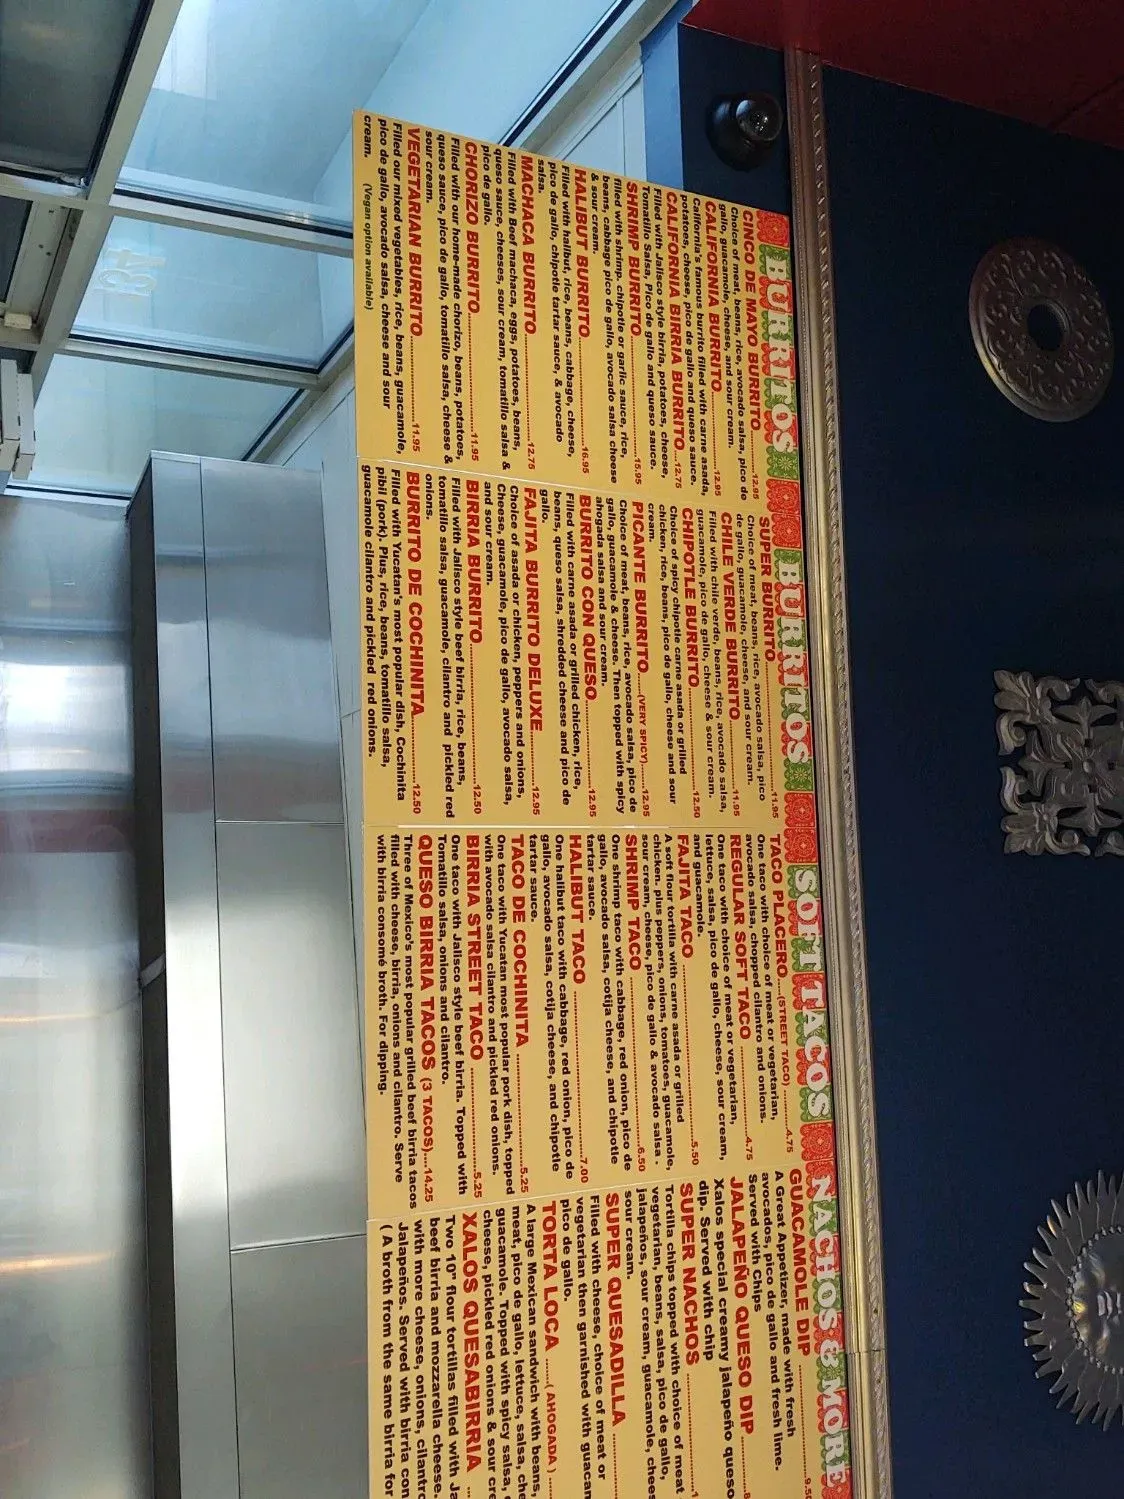 BURRITOS
CINCO DE MAYO BURRITO..........12.95
Choice of meat, beans, rice, avocado salsa, pico de
gallo, guacamole, cheese, and sour cream.
CALIFORNIA BURRITO..........12.95
California's famous burrito filled with carne asada,
potatoes, cheese, pico de gallo and guacamole.
CALIFORNIA BIRRIA BURRITO....12.75
Filled with Jalisco style birria, potatoes, cheese,
Tomatillo Salsa, Pico de gallo and queso sauce.
SHRIMP BURRITO..........15.95
filled with shrimp, chipotle or garlic sauce, rice,
beans, cabbage pico de gallo, avocado salsa cheese
& sour cream.
HALIBUT BURRITO..........16.95
Filled with halibut, rice, beans, cabbage, cheese,
pico de gallo, chipotle tartar sauce, & avocado
salsa.
MACHACA BURRITO..........12.75
Filled with Beef machaca, eggs, potatoes, beans,
queso sauce, cheeses, sour cream, tomatillo salsa &
pico de gallo.
CHORIZO BURRITO..........11.95
Filled with our home-made chorizo, beans, potatoes,
queso sauce, pico de gallo, tomatillo salsa, cheese &
sour cream.
VEGETARIAN BURRITO..........11.95
Filled our mixed vegetables, rice, beans, guacamole,
pico de gallo, avocado salsa, cheese and sour
cream. (Vegan option available)
BURRITOS
SUPER BURRITO..........11.95
Choice of meat, beans, rice, avocado salsa, pico
de gallo, guacamole, cheese, and sour cream.
CHILE VERDE BURRITO..........11.95
Filled with chile verde, beans, rice, avocado salsa,
guacamole, pico de gallo, cheese & sour cream.
CHIPOTLE BURRITO..........12.50
Choice of spicy chipotle carne asada or grilled
chicken, rice, beans, pico de gallo, cheese and sour
cream.
PICANTE BURRITO....(VERY SPICY)....12.95
Choice of meat, beans, rice, avocado salsa, pico de
gallo, guacamole & cheese. Then topped with spicy
ahogada salsa and sour cream.
BURRITO CON QUESO..........12.95
Filled with carne asada or grilled chicken, rice,
beans, queso salsa, shredded cheese and pico de
gallo.
FAJITA BURRITO DELUXE..........12.95
Choice of asada or chicken, peppers and onions,
Cheese, guacamole, pico de gallo, avocado salsa,
and sour cream.
BIRRIA BURRITO..........12.50
Filled with Jalisco style beef birria, rice, beans,
tomatillo salsa, guacamole, cilantro and pickled red
onions.
BURRITO DE COCHINITA..........12.50
Filled with Yucatan's most popular dish, Cochinita
pibil (pork). Plus, rice, beans, tomatillo salsa,
guacamole cilantro and pickled red onions.
SOFT TACOS
TACO PLACERO....(STREET TACO)..........4.75
One taco with choice of meat or vegetarian,
avocado salsa, chopped cilantro and onions.
REGULAR SOFT TACO..........4.75
One taco with choice of meat or vegetarian,
lettuce, salsa, pico de gallo, cheese, sour cream,
and guacamole.
FAJITA TACO..........5.50
A soft flour tortilla with carne asada or grilled
chicken. plus peppers, onions, tomatoes, guacamole,
sour cream, cheese, pico de gallo & avocado salsa .
SHRIMP TACO..........6.50
One shrimp taco with cabbage, red onion, pico de
gallo, avocado salsa, cotija cheese, and chipotle
tartar sauce.
HALIBUT TACO..........7.00
One halibut taco with cabbage, red onion, pico de
gallo, avocado salsa, cotija cheese, and chipotle
tartar sauce.
TACO DE COCHINITA..........5.25
One taco with Yucatan most popular pork dish, topped
with avocado salsa cilantro and pickled red onions.
BIRRIA STREET TACO..........5.25
One taco with Jalisco style beef birria. Topped with
Tomatillo salsa, onions and cilantro.
QUESO BIRRIA TACOS (3 TACOS)....14.25
Three of Mexico's most popular grilled beef birria tacos
filled with cheese, birria, onions and cilantro. Serve
with birria consomé broth. For dipping.
NACHOS & MORE
GUACAMOLE DIP..........9.50
A Great Appetizer, made with fresh
avocados, pico de gallo and fresh lime.
Served with Chips
JALAPEÑO QUESO DIP..........8
Xalos special creamy jalapeño queso
dip. Served with chip
SUPER NACHOS..........1
Tortilla chips topped with choice of meat
vegetarian, beans, salsa, pico de gallo,
jalapeños, sour cream, guacamole, chees
sour cream.
SUPER QUESADILLA..........
Filled with cheese, choice of meat or
vegetarian then garnished with guacam
pico de gallo.
TORTA LOCA ......( AHOGADA )....
A large Mexican sandwich with beans,
meat, pico de gallo, lettuce, salsa, che
guacamole. Topped with spicy salsa,
cheese, pickled red onions & sour cre
XALOS QUESABIRRIA ...
Two 10" flour tortillas filled with Ja
beef birria and mozzarella cheese.
with more cheese, onions, cilantr
Jalapeños. Served with birria con
( A broth from the same birria for